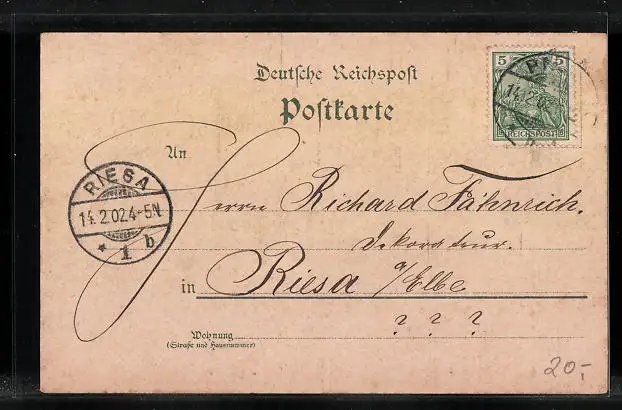 Deutsche Reichspost
Postkarte
5 5
REICHSPOST
14.2.02
An
Herrn Richard Fähnrich.
Dekorateur.
in Riesa a/Elbe
? ? ?
Wohnung
(Straße und Hausnummer)
RIESA
14.2.02.4-5N.
* 1 b
20,-